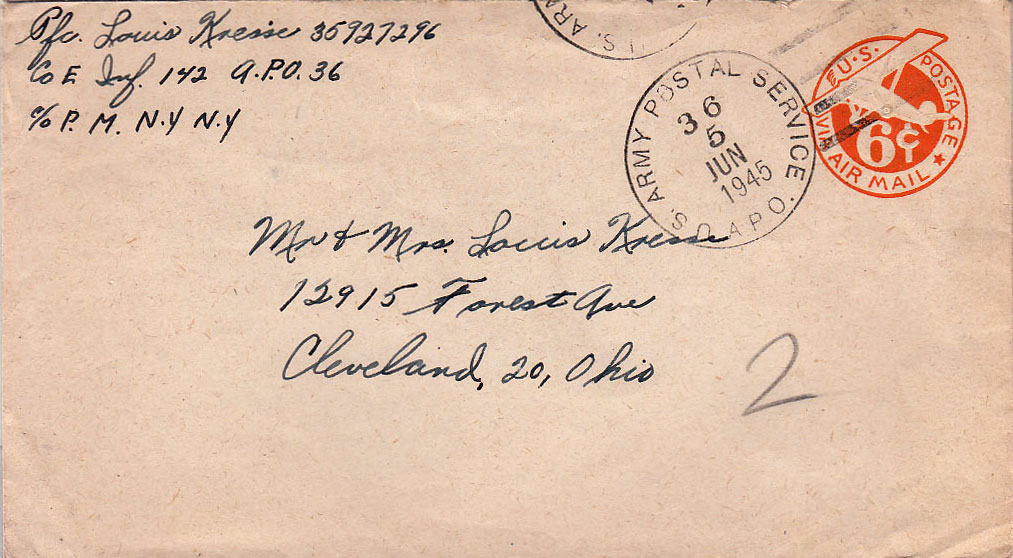 Pfc. Louis Kresse 35927296
Co E Inf. 142 A.P.O. 36
c/o P. M. N.Y N.Y
U.S. ARM
U.S. ARMY POSTAL SERVICE
36
5
JUN
1945
A.P.O.
U.S. POSTAGE
6¢
VIA AIR MAIL
Mr & Mrs. Louis Kresse
12915 Forest Ave
Cleveland, 20, Ohio
2